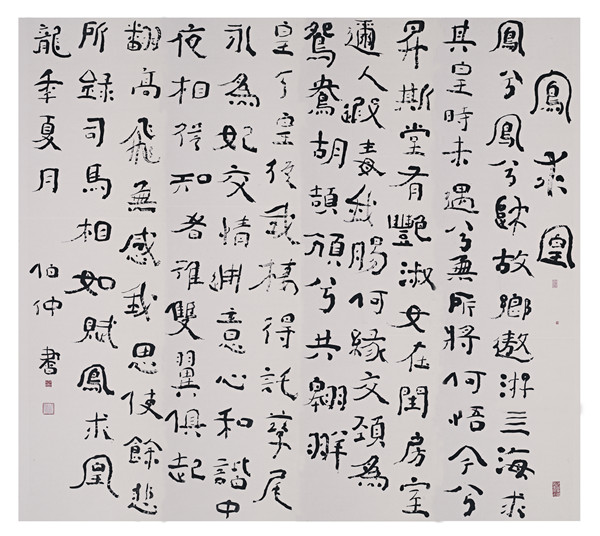 鳳求凰
鳳兮鳳兮歸故鄉遨游三海求
其皇時未遇兮無所將何悟今兮
昇斯堂有艷淑女在閨房室
邇人遐毒我腸何緣交頸為
鴛鴦胡頡頏兮共翱翔
皇兮皇從我棲得託孳尾
永為妃交情通意心和諧中
夜相從知者誰雙翼俱起
翻高飛無感我思使餘悲
所錄司馬相如賦鳳求凰
龍年夏月
伯仲書